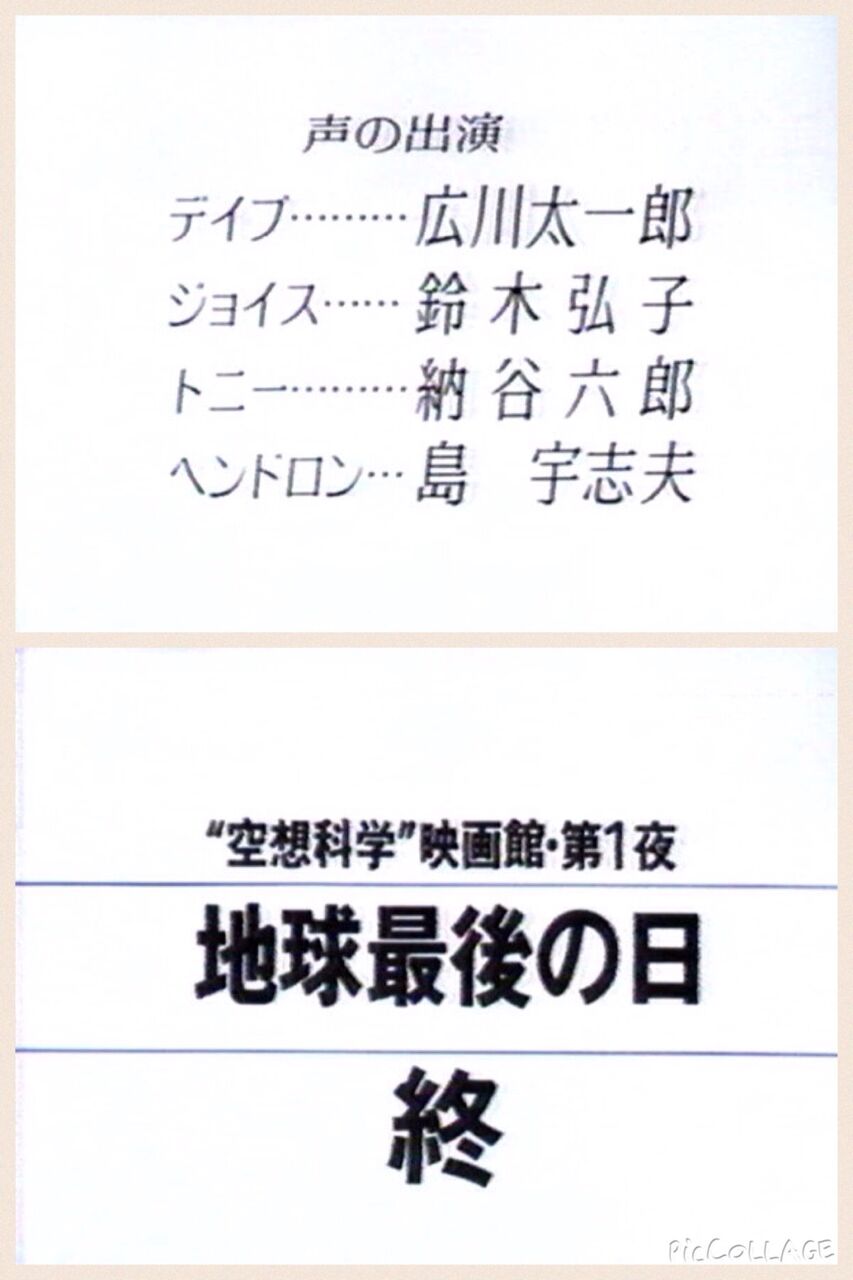 声の出演
デイブ………広川太一郎
ジョイス……鈴木弘子
トニー………納谷六郎
ヘンドロン…島　宇志夫
“空想科学”映画館・第1夜
地球最後の日
終
PicCOLLAGE